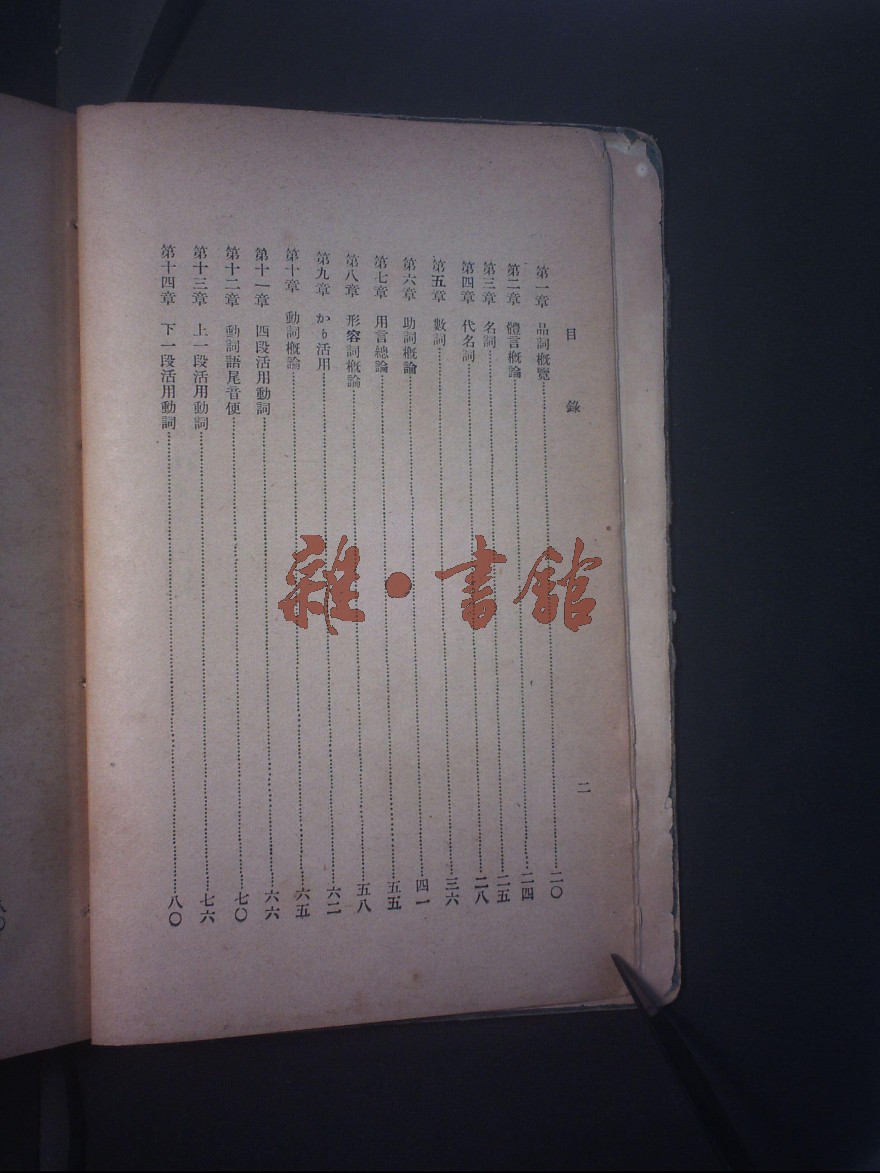 目錄
二
第一章　品詞概覽……二〇
第二章　體言概論……二四
第三章　名詞……二五
第四章　代名詞……二八
第五章　數詞……三六
第六章　助詞概論……四一
第七章　用言總論……五五
第八章　形容詞概論……五八
第九章　かり活用……六二
第十章　動詞概論……六五
第十一章　四段活用動詞……六六
第十二章　動詞語尾音便……七〇
第十三章　上一段活用動詞……七六
第十四章　下一段活用動詞……八〇
雜·書館